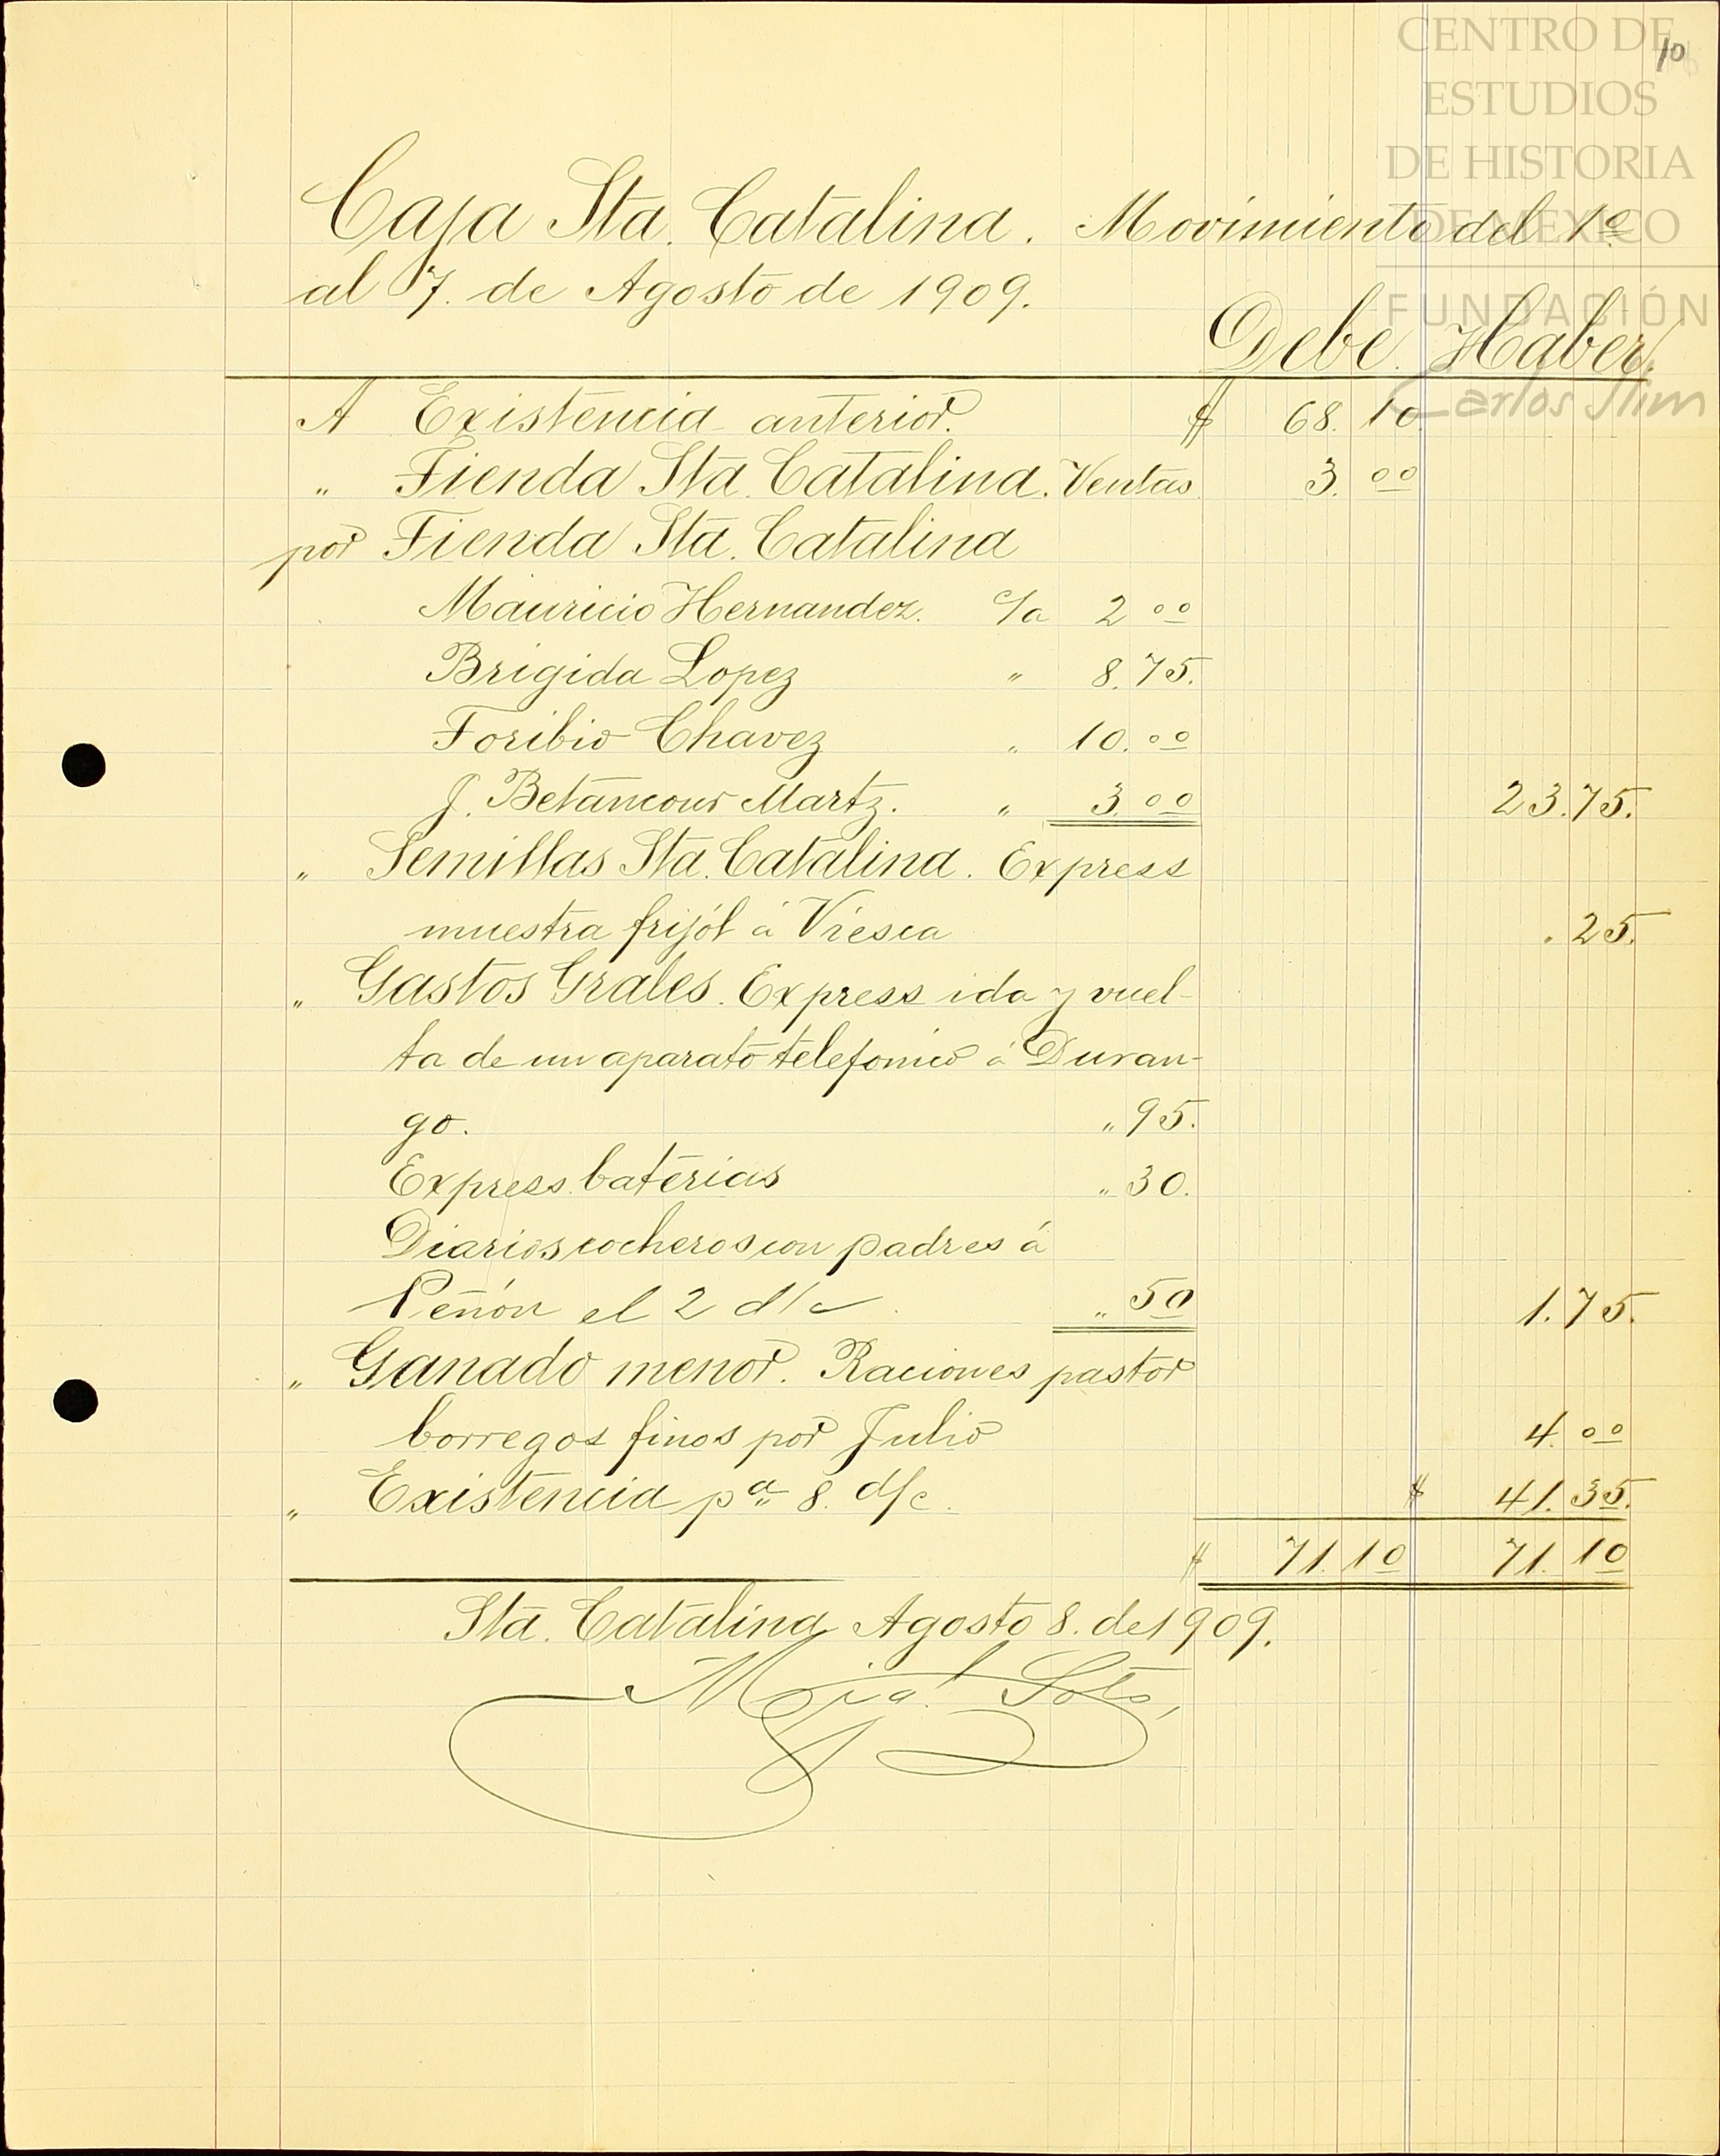 CENTRO DE
ESTUDIOS
DE HISTORIA
DE MÉXICO
FUNDACIÓN
Carlos Slim
10
Caja Sta. Catalina. Movimiento del 1º
al 7. de Agosto de 1909.
Debe. Haber.
A Existencia anterior. $ 68.10
" Tienda Sta. Catalina. Ventas 3.00
por Tienda Sta. Catalina
Mauricio Hernandez. c/a 2 00
Brigida Lopez " 8.75.
Toribio Chavez " 10.00
J. Betancour Martz. " 3.00 23.75.
" Semillas Sta. Catalina. Express
muestra frijól á Viesca .25.
" Gastos Grales. Express ida y vuel-
ta de un aparato telefonico á Duran-
go. "95.
Express baterias "30.
Diarios cocheros con padres á
Peñón el 2 d/c "50 1.75.
" Ganado menor. Raciones pastor
borregos finos por Julio 4.00
" Existencia pa. 8. d/c. $ 41.35.
$ 71.10 71.10
Sta. Catalina Agosto 8. de 1909.
Soto